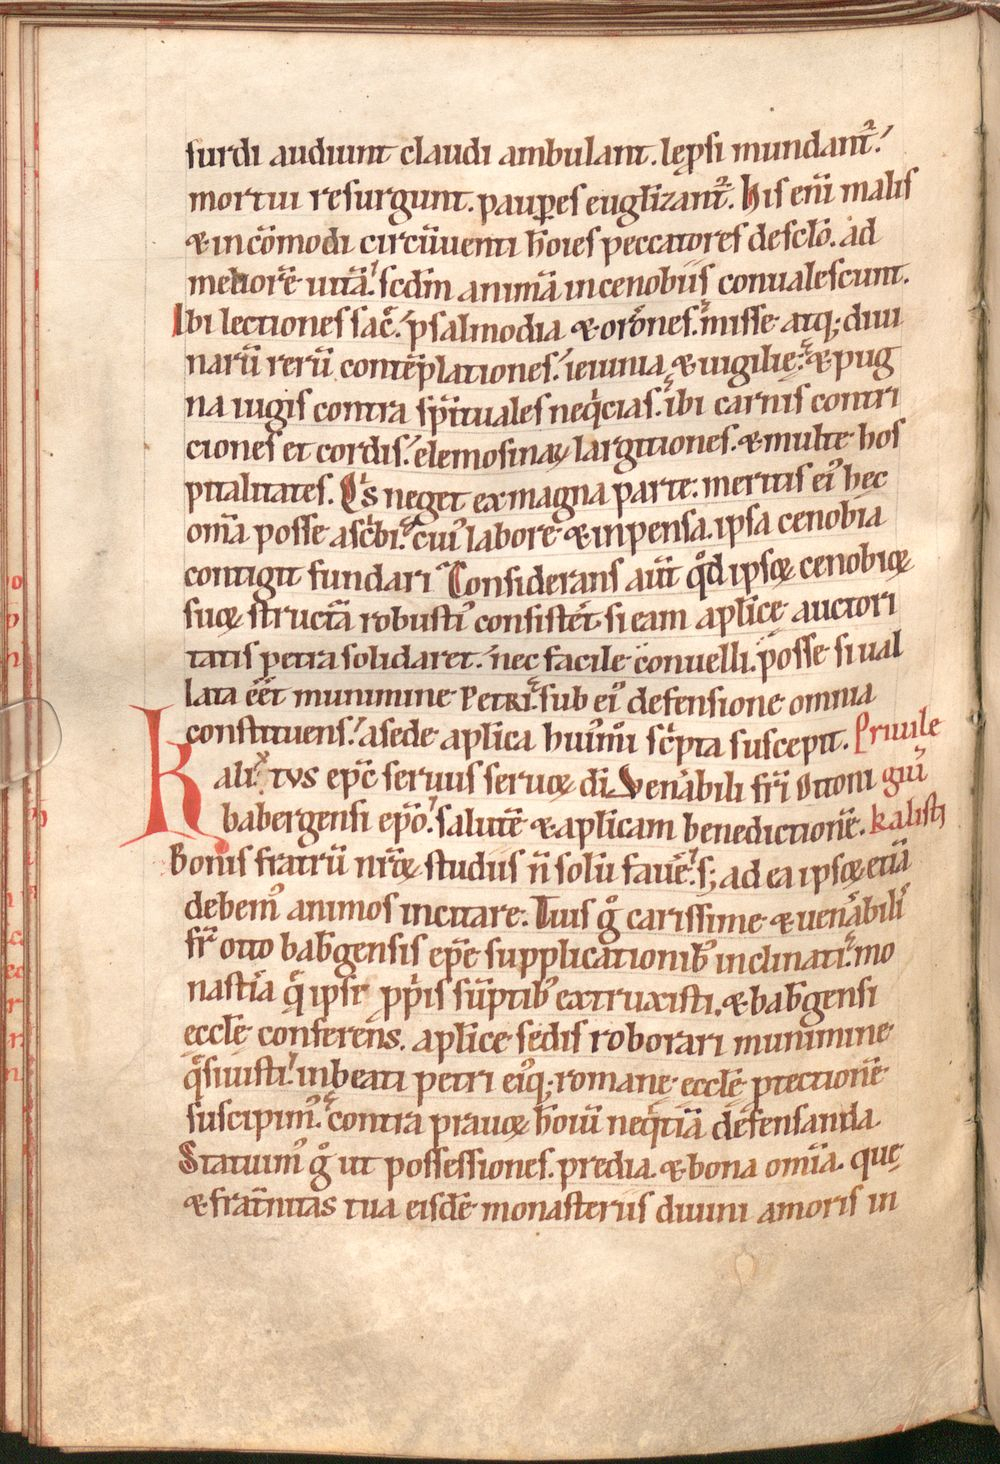 surdi audiunt claudi ambulant. lep̱si mundant᷑.
mortui resurgunt. paup̱es euglizant᷑. his enī malis
& incōmodi circūuenti hōies peccatores de sc̄lo. ad
meliorē uitā. scdm̄ animā in cenobiis conualescunt.
Ibi lectiones sac̄. psalmodia & orōnes. misse atq; diui
narū rerū contēplationes. ieiunia & uigilię. & pug
na iugis contra sp̄rituales neqͥcias. ibi carnis contri
ciones et cordis. elemosinaꝝ largitiones. & multe hos
pitalitates. Qͥs neget ex magna parte. meritis eiꝰ hec
om̄a posse ascͥbi. cuiꝰ labore & inpensa. ipsa cenobia
contigit fundari. Considerans aut̄ qͦd ipsoꝝ cenobioꝝ
suoꝝ structā robustiꝰ consistēt. si eam aplice auctori
tatis petra solidaret. nec facile conuelli. posse si ual
lata eēt munimine PETRI. sub eiꝰ defensione omnia
constituens. a sede aplica huiꝰmͦi scͥpta suscepit. Priuile
Kalixtus epc̄ seruus seruoꝝ dī. Venābili frī Ottoni giū
babergensi epō. salutē & aplicam benedictionē. kalisti
Bonis fratrū nr̄oꝝ studiis n̄ solū fauē. s; ad ea ipsoꝝ etiā
debemꝰ animos incitare. Tuis gͦ carissime & uenābilī
fr̄ otto bab̄gensis epē supplicationibꝰ inclinati. mo
nastīa qͣ ipse pp̱is sūptibꝰ extruxisti. & bab̄gensi
eccłe conferens. aplice sedis roborari munimine
qͣsiuisti. in beati petri eiꝰq; romane eccłe p̱tectionē
suscipimꝰ. contra prauoꝝ hoīū neqͥtiā defensanda.
Statuimꝰ gͦ ut possessiones. predia. & bona om̄ia. quę
& frat̄nitas tua eisdē monasteriis diuini amoris in